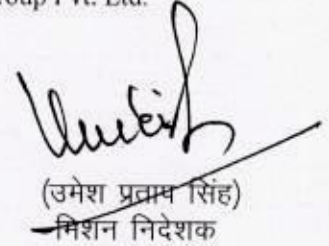 roup Pvt. Ltd.
(उमेश प्रताप सिंह)
मिशन निदेशक